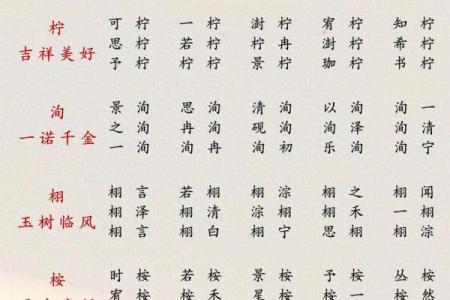 柠
吉祥美好
可 柠 一 柠 澍 柠 宥 柠 知 柠
思 柠 若 柠 柠 冉 澍 柠 希 柠
予 柠 柠 柠 柠 景 珈 柠 书 柠
洵
一诺千金
景 洵 思 洵 清 洵 以 洵 洵 一
之 洵 冉 洵 砚 洵 洵 泽 洵 清
一 洵 洵 冉 洵 初 乐 洵 洵 宁
栩
玉树临风
栩 言 若 栩 栩 淙 栩 之 栩 闻
栩 泽 栩 清 淙 栩 栩 禾 栩 一
栩 言 栩 白 栩 宁 栩 思 栩 淙
桉
时 桉 若 桉 景 桉 予 桉 丛 桉